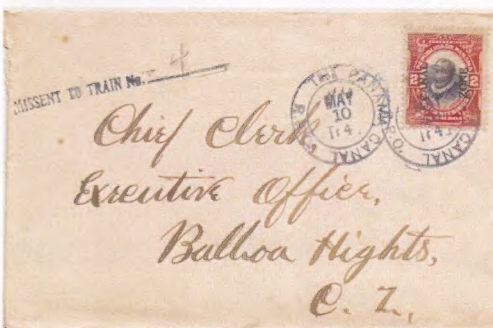 MISSENT TO TRAIN No. 4
THE PANAMA CANAL
R.P.O.
MAY
10
Tr 4
CANAL ZONE
2 2
Chief Clerk
Executive Office,
Balboa Hights,
C. Z.,